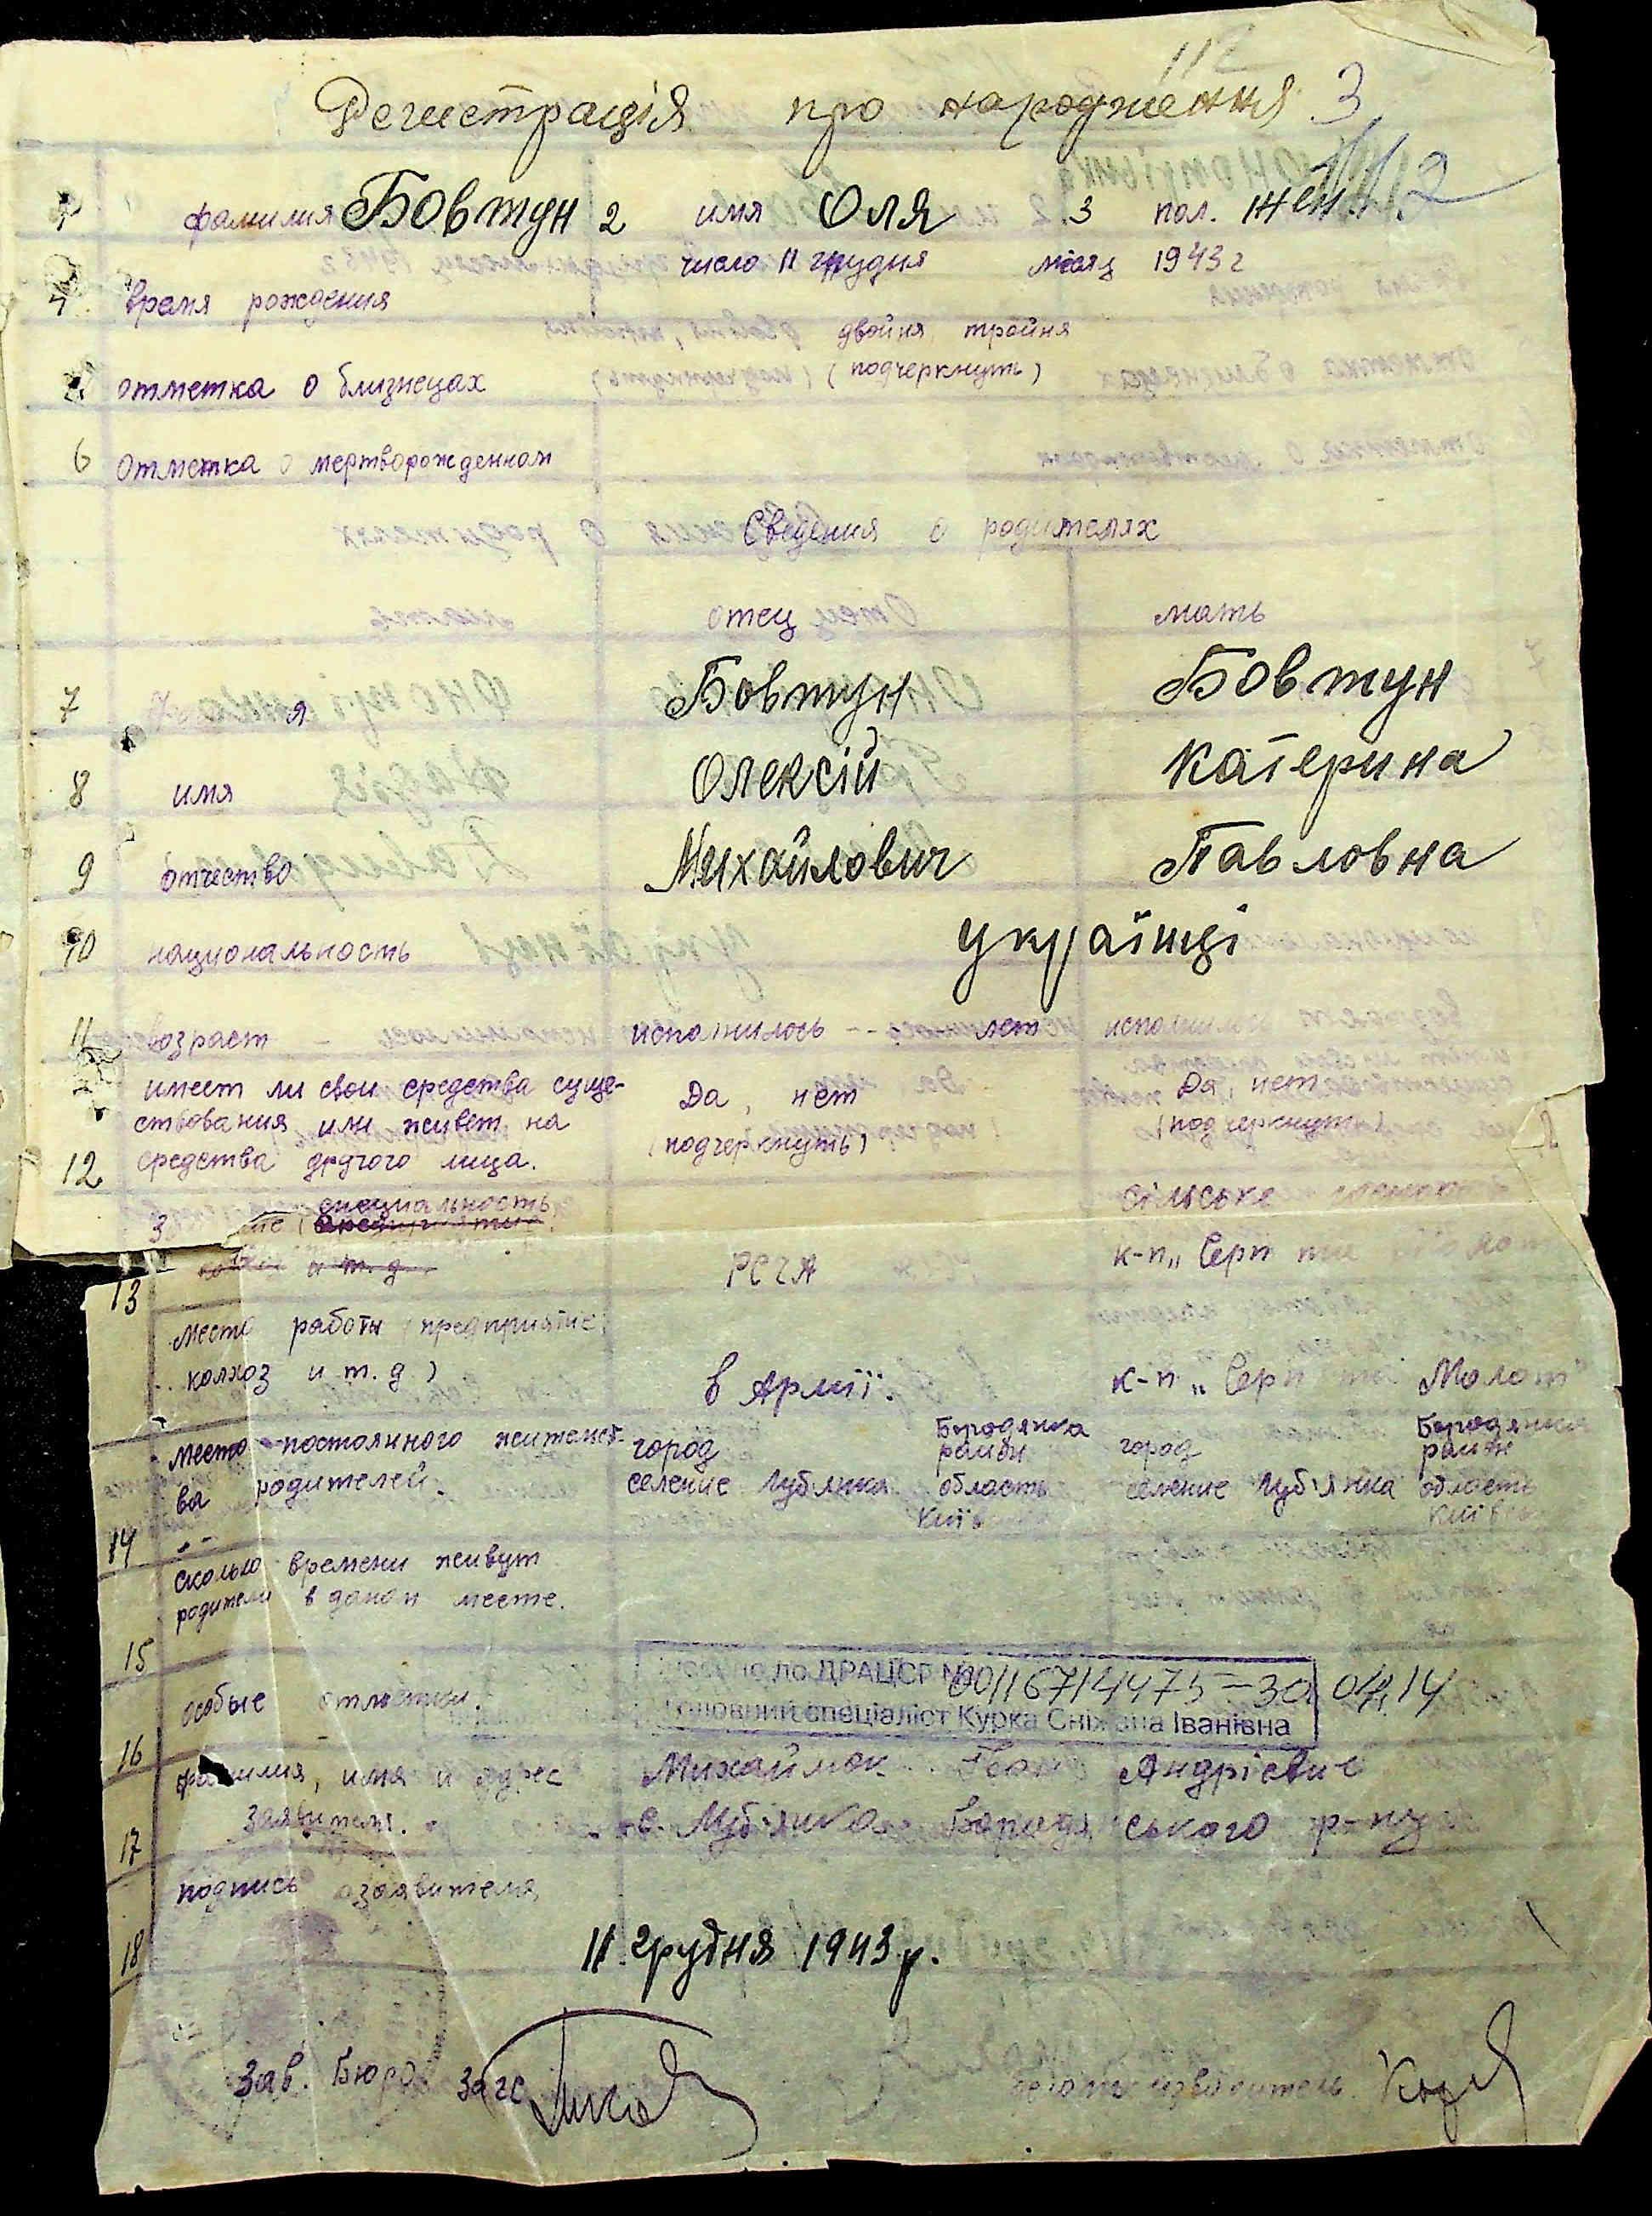 112
Регистрація про народження 3
112
1 фамилия Бовтун 2 имя Оля 3 пол. жен.
число 11 грудня місяц 1943 г
4 время рождения
двойня, тройня
5 отметка о близнецах (подчеркнуть)
6 Отметка о мертворожденном
Сведения о родителях
отец мать
7 Бовтун Бовтун
8 имя Олексій Катерина
9 отчество Михайлович Павловна
10 национальность українці
11 возраст исполнилось -- лет исполнилось
имеет ли свои средства суще- Да, нет Да, нет
ствования или живет на (подчеркнуть) (подчеркнуть)
12 средства другого лица.
специальность сільське
и т. д. РСЧА к-п „Серп ти Молот
13
место работы (предприятие,
колхоз и т. д.) в Армії. к-п „Серп ти Молот"
место постоянного жительст- город Бородянка район город Бородянка район
ва родителей. селение Луб'янка область Київ селение Луб'янка область Київ
14
сколько времени живут
родители в даном месте.
15
внесено до ДРАЦСР № 00116714475 - 30.04.14
особые отметки. Головний спеціаліст Курка Сніжана Іванівна
16
фамилия, имя и адрес Михаймок Іван Андрієвич
заявителя. с. Луб'янка Бородянського р-ну
17
подпись заявителя
18 11 грудня 1943 р.
Зав. Бюро Загс делопроизводитель